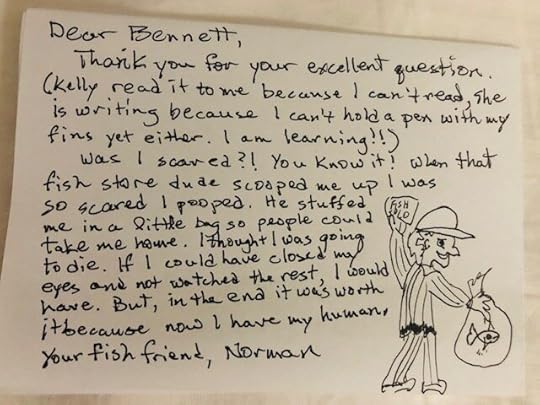 Dear Bennett,
Thank you for your excellent question.
(Kelly read it to me because I can't read, she
is writing because I can't hold a pen with my
fins yet either. I am learning!!)
Was I scared?! You know it! When that
fish store dude scooped me up I was
so scared I pooped. He stuffed
me in a little bag so people could
take me home. I thought I was going
to die. If I could have closed my
eyes and not watched the rest, I would
have. But, in the end it was worth
it because now I have my human.
Your fish friend, Norman
FISH
SOLO